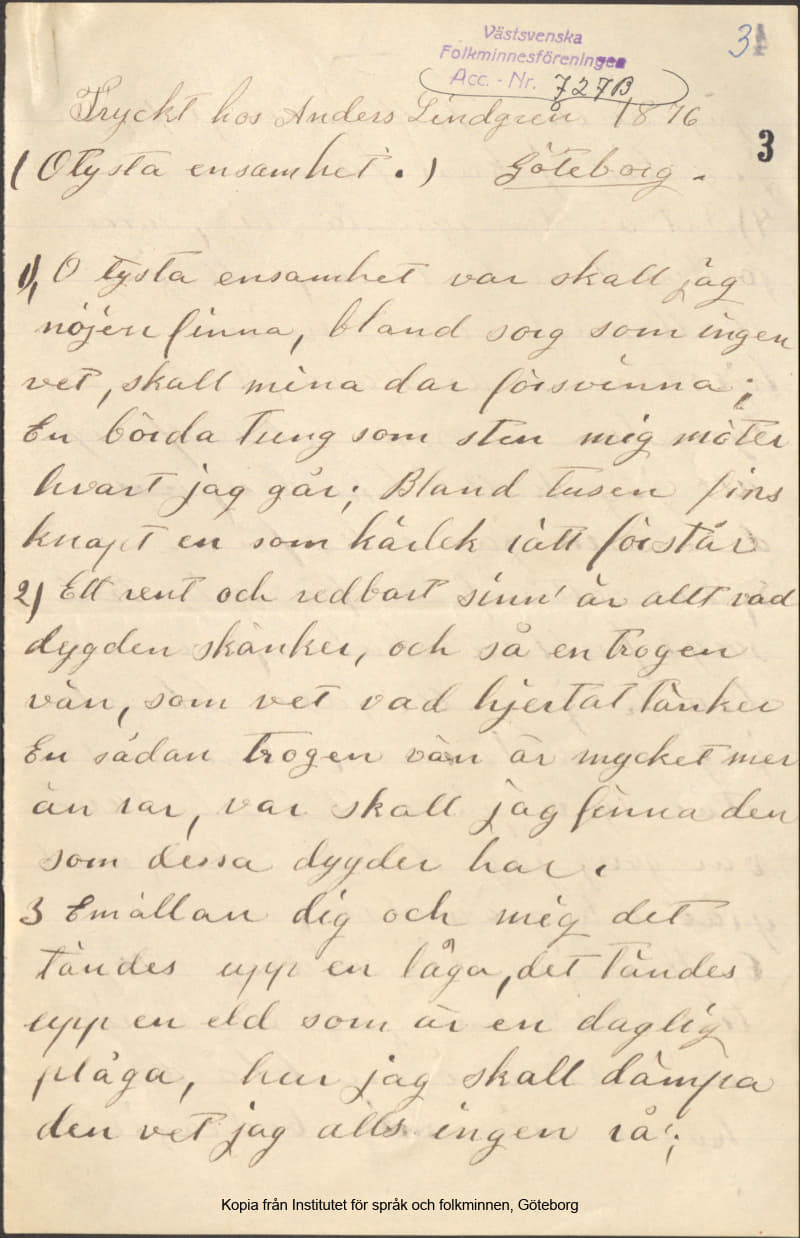 Västsvenska
Folkminnesföreningen
Acc. - Nr. 727B
3
3
Tryckt hos Anders Lindgren 1876
(O tysta ensamhet.) Göteborg.
1), O tysta ensamhet var skall jag
nöjen finna, bland sorg som ingen
vet, skall mina dar försvinna;
En börda tung som sten mig möter
hvart jag går; Bland tusen fins
knapt en som kärlek rätt förstår
2) Ett rent och redbart sinn' är allt vad
dygden skänker, och så en trogen
vän, som vet vad hjertat tänker
En sådan trogen vän är mycket mer
än rar, var skall jag finna den
som dessa dygder har.
3 Emällan dig och mig det
tändes upp en låga, det tändes
upp en eld som är en daglig
plåga, hur jag skall dämpa
den vet jag alls ingen rå';
Kopia från Institutet för språk och folkminnen, Göteborg